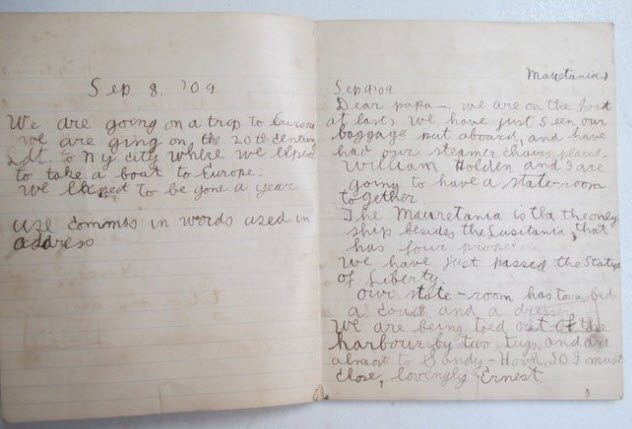 Sep 8. '09
We are going on a trop to Europe
we are ging on the 20th century
Ldt. to Ny city where we expect
to take a boat to Europe.
We Expect to be gone a year
use commas in words used in
address
Mauretania
Sep 9 '09
Dear papa—, we are on the boat
at last, we have just seen our
baggage put aboard, and have
had our steamer chairs
William Holden and I are
going to have a state-room
together
The Mauretania is the only
ship besides the Lusitania, that
has four
We have just passed the Statue
of Liberty
Our state-room has bed
a couch and a dresser
We are being toed out of the
harbour by two tugs, and are
almost to Sandy-Hook, SO I must
close, lovingly Ernest.